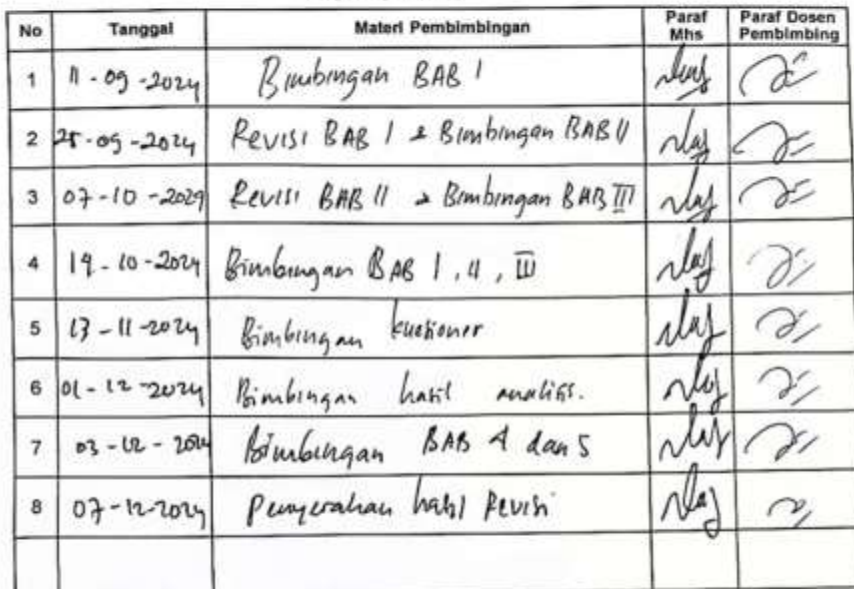 No Tanggal Materi Pembimbingan Paraf Mhs Paraf Dosen Pembimbing
1 11-09-2024 Bimbingan BAB I
2 25-09-2024 Revisi BAB I & Bimbingan BAB II
3 07-10-2024 Revisi BAB II & Bimbingan BAB III
4 14-10-2024 Bimbingan BAB I, II, III
5 13-11-2024 Bimbingan kuesioner
6 01-12-2024 Bimbingan hasil analisis.
7 03-12-2024 Bimbingan BAB 4 dan 5
8 07-12-2024 Penyerahan hasil Revisi